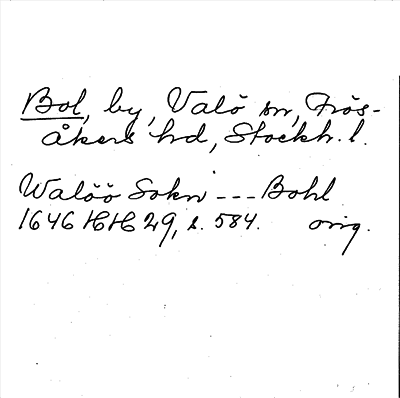 Bol, by, Valö sn, Frös-
åkers hd, Stockh. l.
Walöö Sokn --- Bohl
1646 HH 29, s. 584. orig.